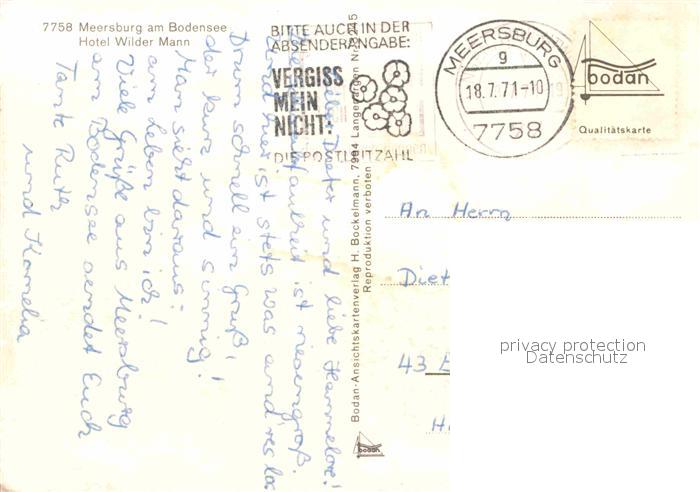 7758 Meersburg am Bodensee
Hotel Wilder Mann
BITTE AUCH IN DER
ABSENDERANGABE:
VERGISS
MEIN
NICHT:
DIE POSTLEITZAHL
MEERSBURG
g
18.7.71-10
7758
bodan
Qualitätskarte
Dieter und liebe Hannelore!
ist riesengroß.
und hier ist stets was and'res los
Drum schnell ein Gruß,
der kurz und sinnig!
Man sieht daraus:
am Leben bin ich!
Viele Grüße aus Meersburg
am Bodensee sendet Euch
Tante Ruth
und Kornelia
Bodan-Ansichtskartenverlag H. Bockelmann, 7994 Langenargen
Reproduktion verboten
bodan
An Herrn
Diet
43 E
H
privacy protection
Datenschutz